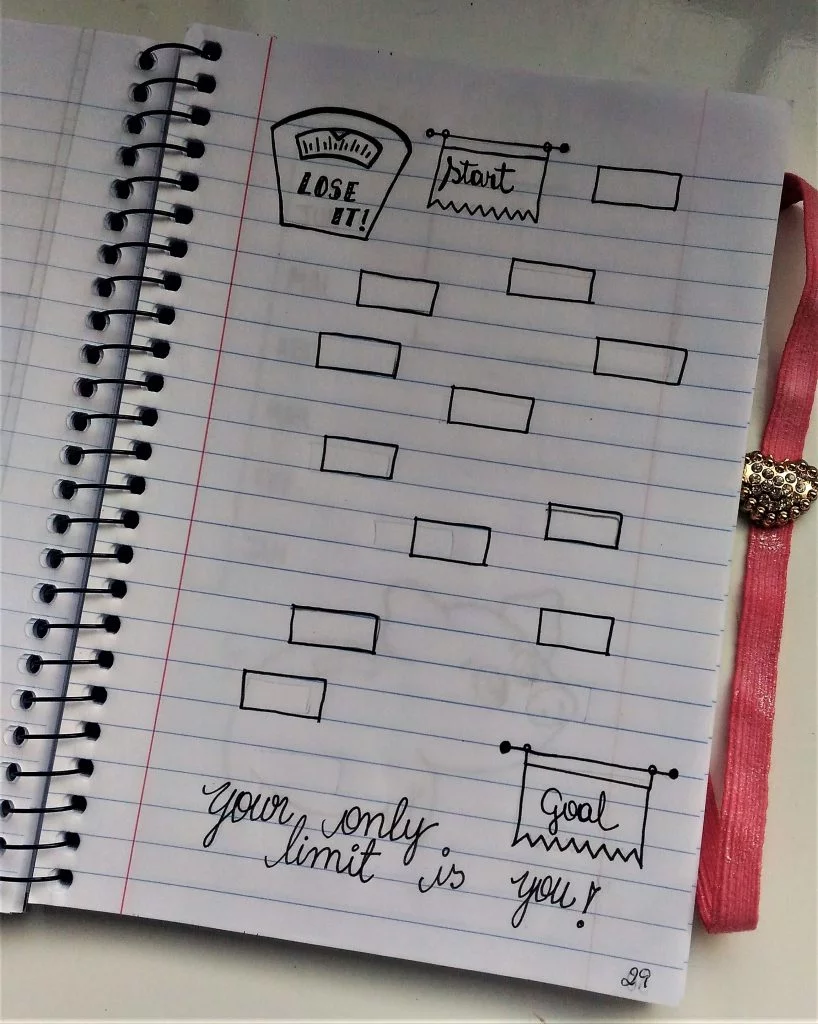 LOSE
IT!
Start
Goal
your only
limit is you!
29